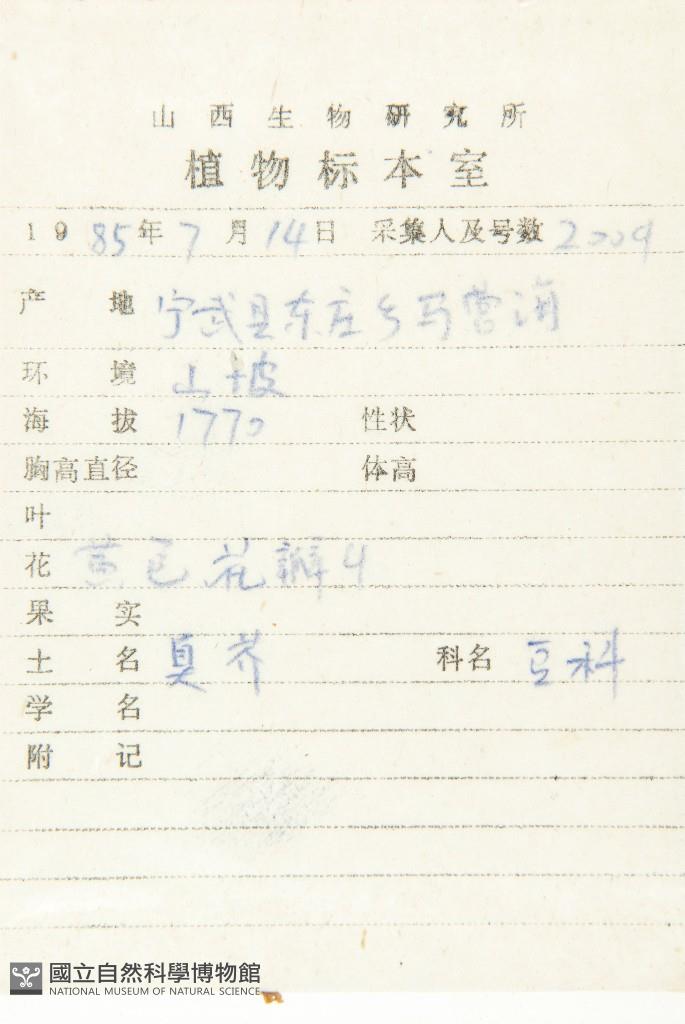 山西生物研究所
植物标本室
1985年7月14日 采集人及号数 2009
产地 宁武县东庄乡马营海
环境 山坡
海拔 1770 性状
胸高直径 体高
叶
花 黄色花瓣4
果实
土名 臭芥 科名 豆科
学名
附记
國立自然科學博物館
NATIONAL MUSEUM OF NATURAL SCIENCE